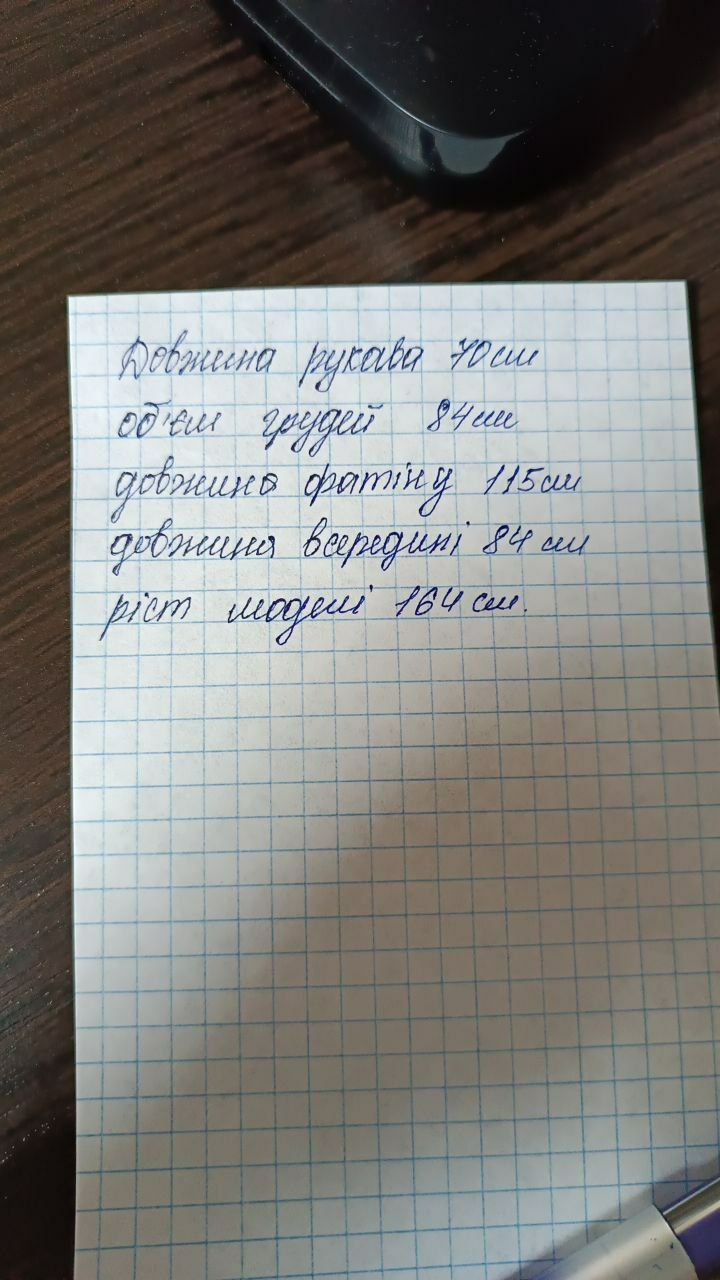 Довжина рукава 70см
об'єм грудей 84см
довжина фатіну 115см
довжина всередині 84 см
ріст моделі 164 см.